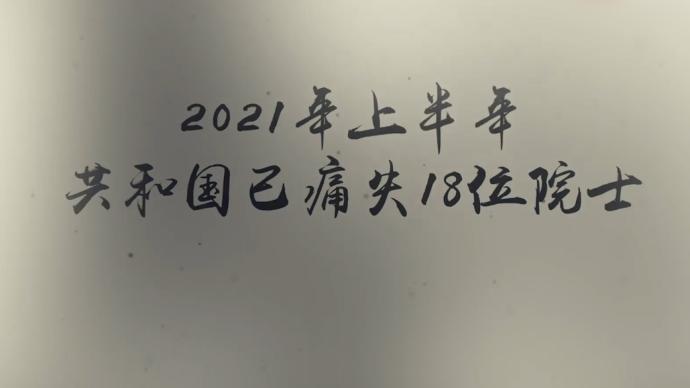 2021年上半年
共和国已痛失18位院士